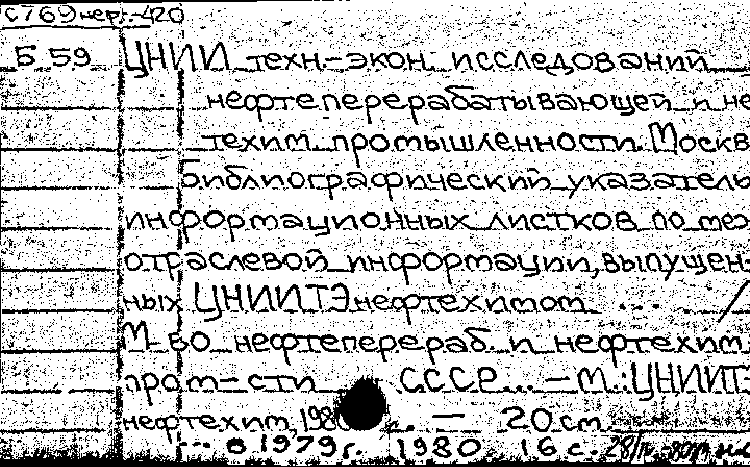 С769 нер.-420
Б 59 ЦНИИ техн-экон. исследований
нефтеперерабатывающей и не
техим. промышленности. Москв
Библиографический указатель
информационных листков по меж
отраслевой информации, выпущен-
ных ЦНИИТЭнефтехимом ... /
М-во нефтеперераб. и нефтехим.
пром-сти СССР... – М.: ЦНИИТ
нефтехим, 198 .. – 20 см.
... в 1979 г. 1980 16 с.